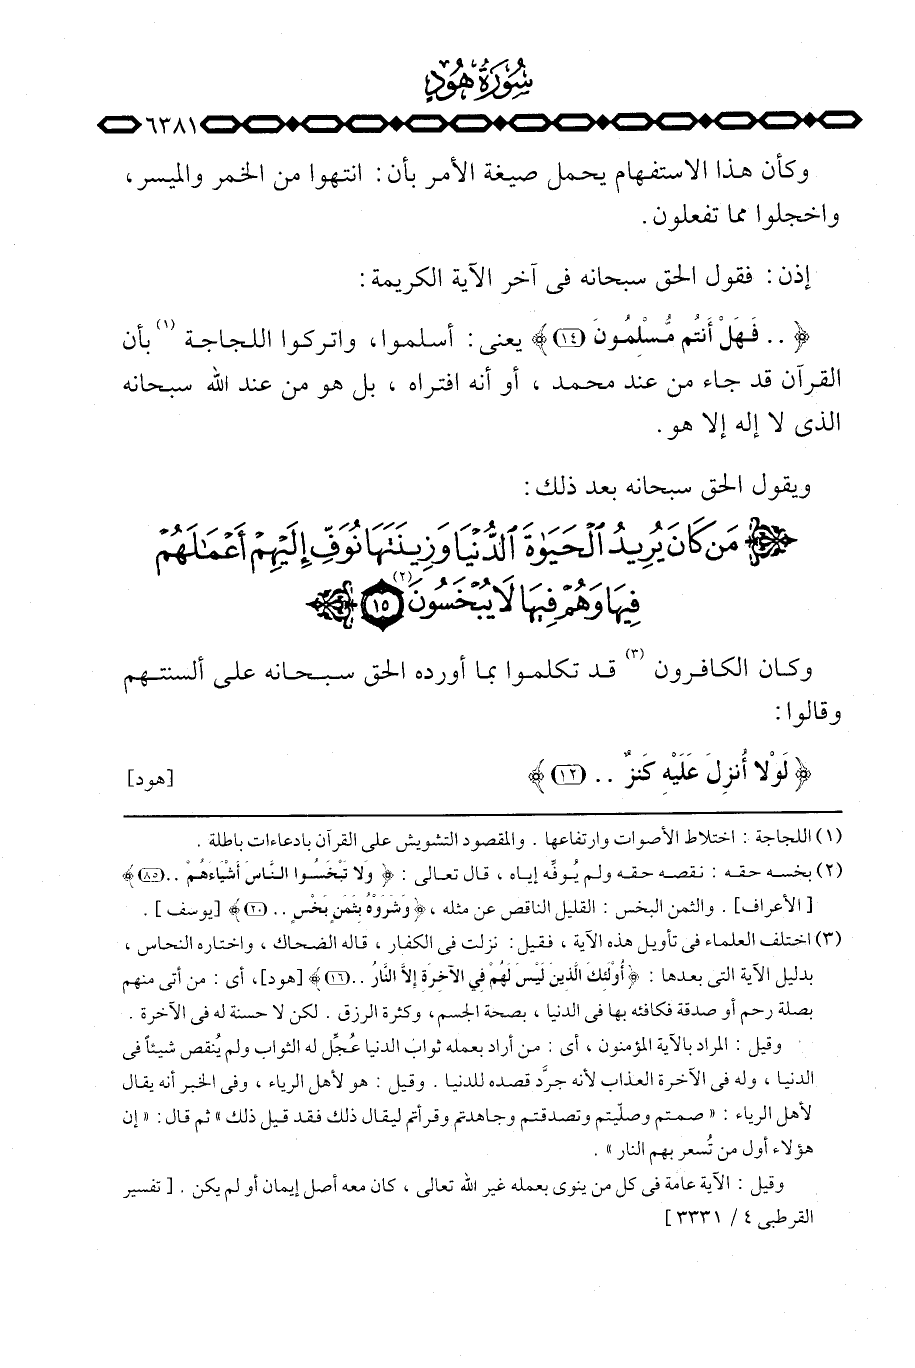 سُورَةُ هُودٍ
٦٣٨١
وكأن هذا الاستفهام يحمل صيغة الأمر بأن: انتهوا من الخمر والميسر،
واخجلوا مما تفعلون.
إذن: فقول الحق سبحانه فى آخر الآية الكريمة:
﴿ .. فَهَلْ أَنتُم مُّسْلِمُونَ (١٤) ﴾ يعنى: أسلموا، واتركوا اللجاجة (١) بأن
القرآن قد جاء من عند محمد ، أو أنه افتراه ، بل هو من عند الله سبحانه
الذى لا إله إلا هو.
ويقول الحق سبحانه بعد ذلك:
﴿ مَن كَانَ يُرِيدُ ٱلْحَيَوٰةَ ٱلدُّنْيَا وَزِينَتَهَا نُوَفِّ إِلَيْهِمْ أَعْمَـٰلَهُمْ
فِيهَا وَهُمْ فِيهَا لَا يُبْخَسُونَ (٢) (١٥) ﴾
وكان الكافرون (٣) قد تكلموا بما أورده الحق سبحانه على ألسنتهم
وقالوا:
﴿ لَوْلا أُنزِلَ عَلَيْهِ كَنزٌ .. (١٢) ﴾ [هود]
(١) اللجاجة : اختلاط الأصوات وارتفاعها . والمقصود التشويش على القرآن بادعاءات باطلة .
(٢) بخسه حقه : نقصه حقه ولم يُوفِّه إياه ، قال تعالى : ﴿ وَلا تَبْخَسُوا النَّاسَ أَشْيَاءَهُمْ .. (٨٥) ﴾
[ الأعراف] . والثمن البخس : القليل الناقص عن مثله ، ﴿ وَشَرَوْهُ بِثَمَنٍ بَخْسٍ .. (٢٠) ﴾ [يوسف ] .
(٣) اختلف العلماء فى تأويل هذه الآية ، فقيل : نزلت فى الكفار ، قاله الضحاك ، واختاره النحاس ،
بدليل الآية التى بعدها : ﴿ أُوْلَئِكَ الَّذِينَ لَيْسَ لَهُمْ فِي الآخِرَةِ إِلاَّ النَّارُ .. (١٦) ﴾ [هود]، أى : من أتى منهم
بصلة رحم أو صدقة فكافئه بها فى الدنيا ، بصحة الجسم، وكثرة الرزق . لكن لا حسنة له فى الآخرة .
وقيل : المراد بالآية المؤمنون ، أى : من أراد بعمله ثواب الدنيا عُجِّل له الثواب ولم يُنقص شيئاً فى
الدنيا ، وله فى الآخرة العذاب لأنه جرَّد قصده للدنيا . وقيل : هو لأهل الرياء ، وفى الخبر أنه يقال
لأهل الرياء : « صمتم وصلّيتم وتصدقتم وجاهدتم وقرأتم ليقال ذلك فقد قيل ذلك » ثم قال : « إن
هؤلاء أول من تُسعر بهم النار » .
وقيل : الآية عامة فى كل من ينوى بعمله غير الله تعالى ، كان معه أصل إيمان أو لم يكن . [ تفسير
القرطبى ٤ / ٣٣٣١ ]